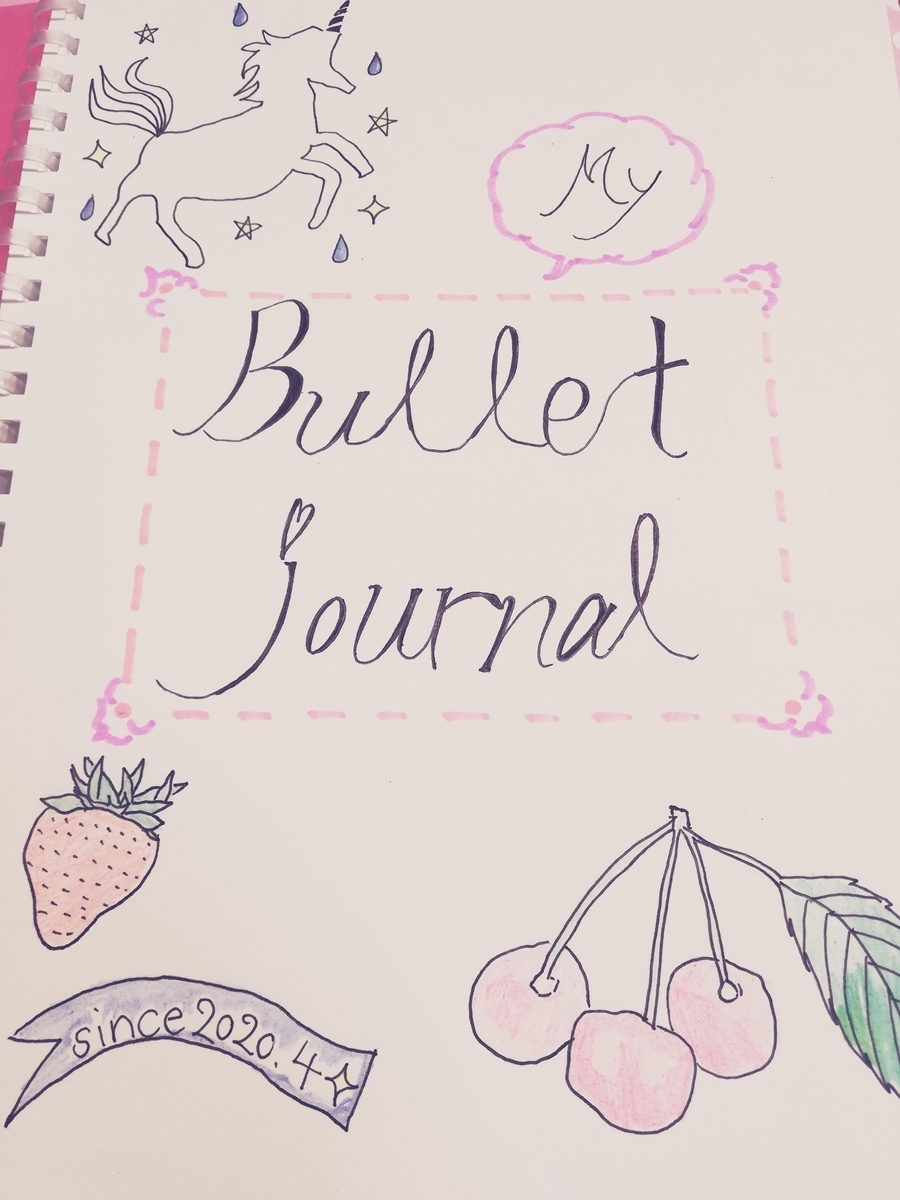 My
Bullet
Journal
since 2020.4